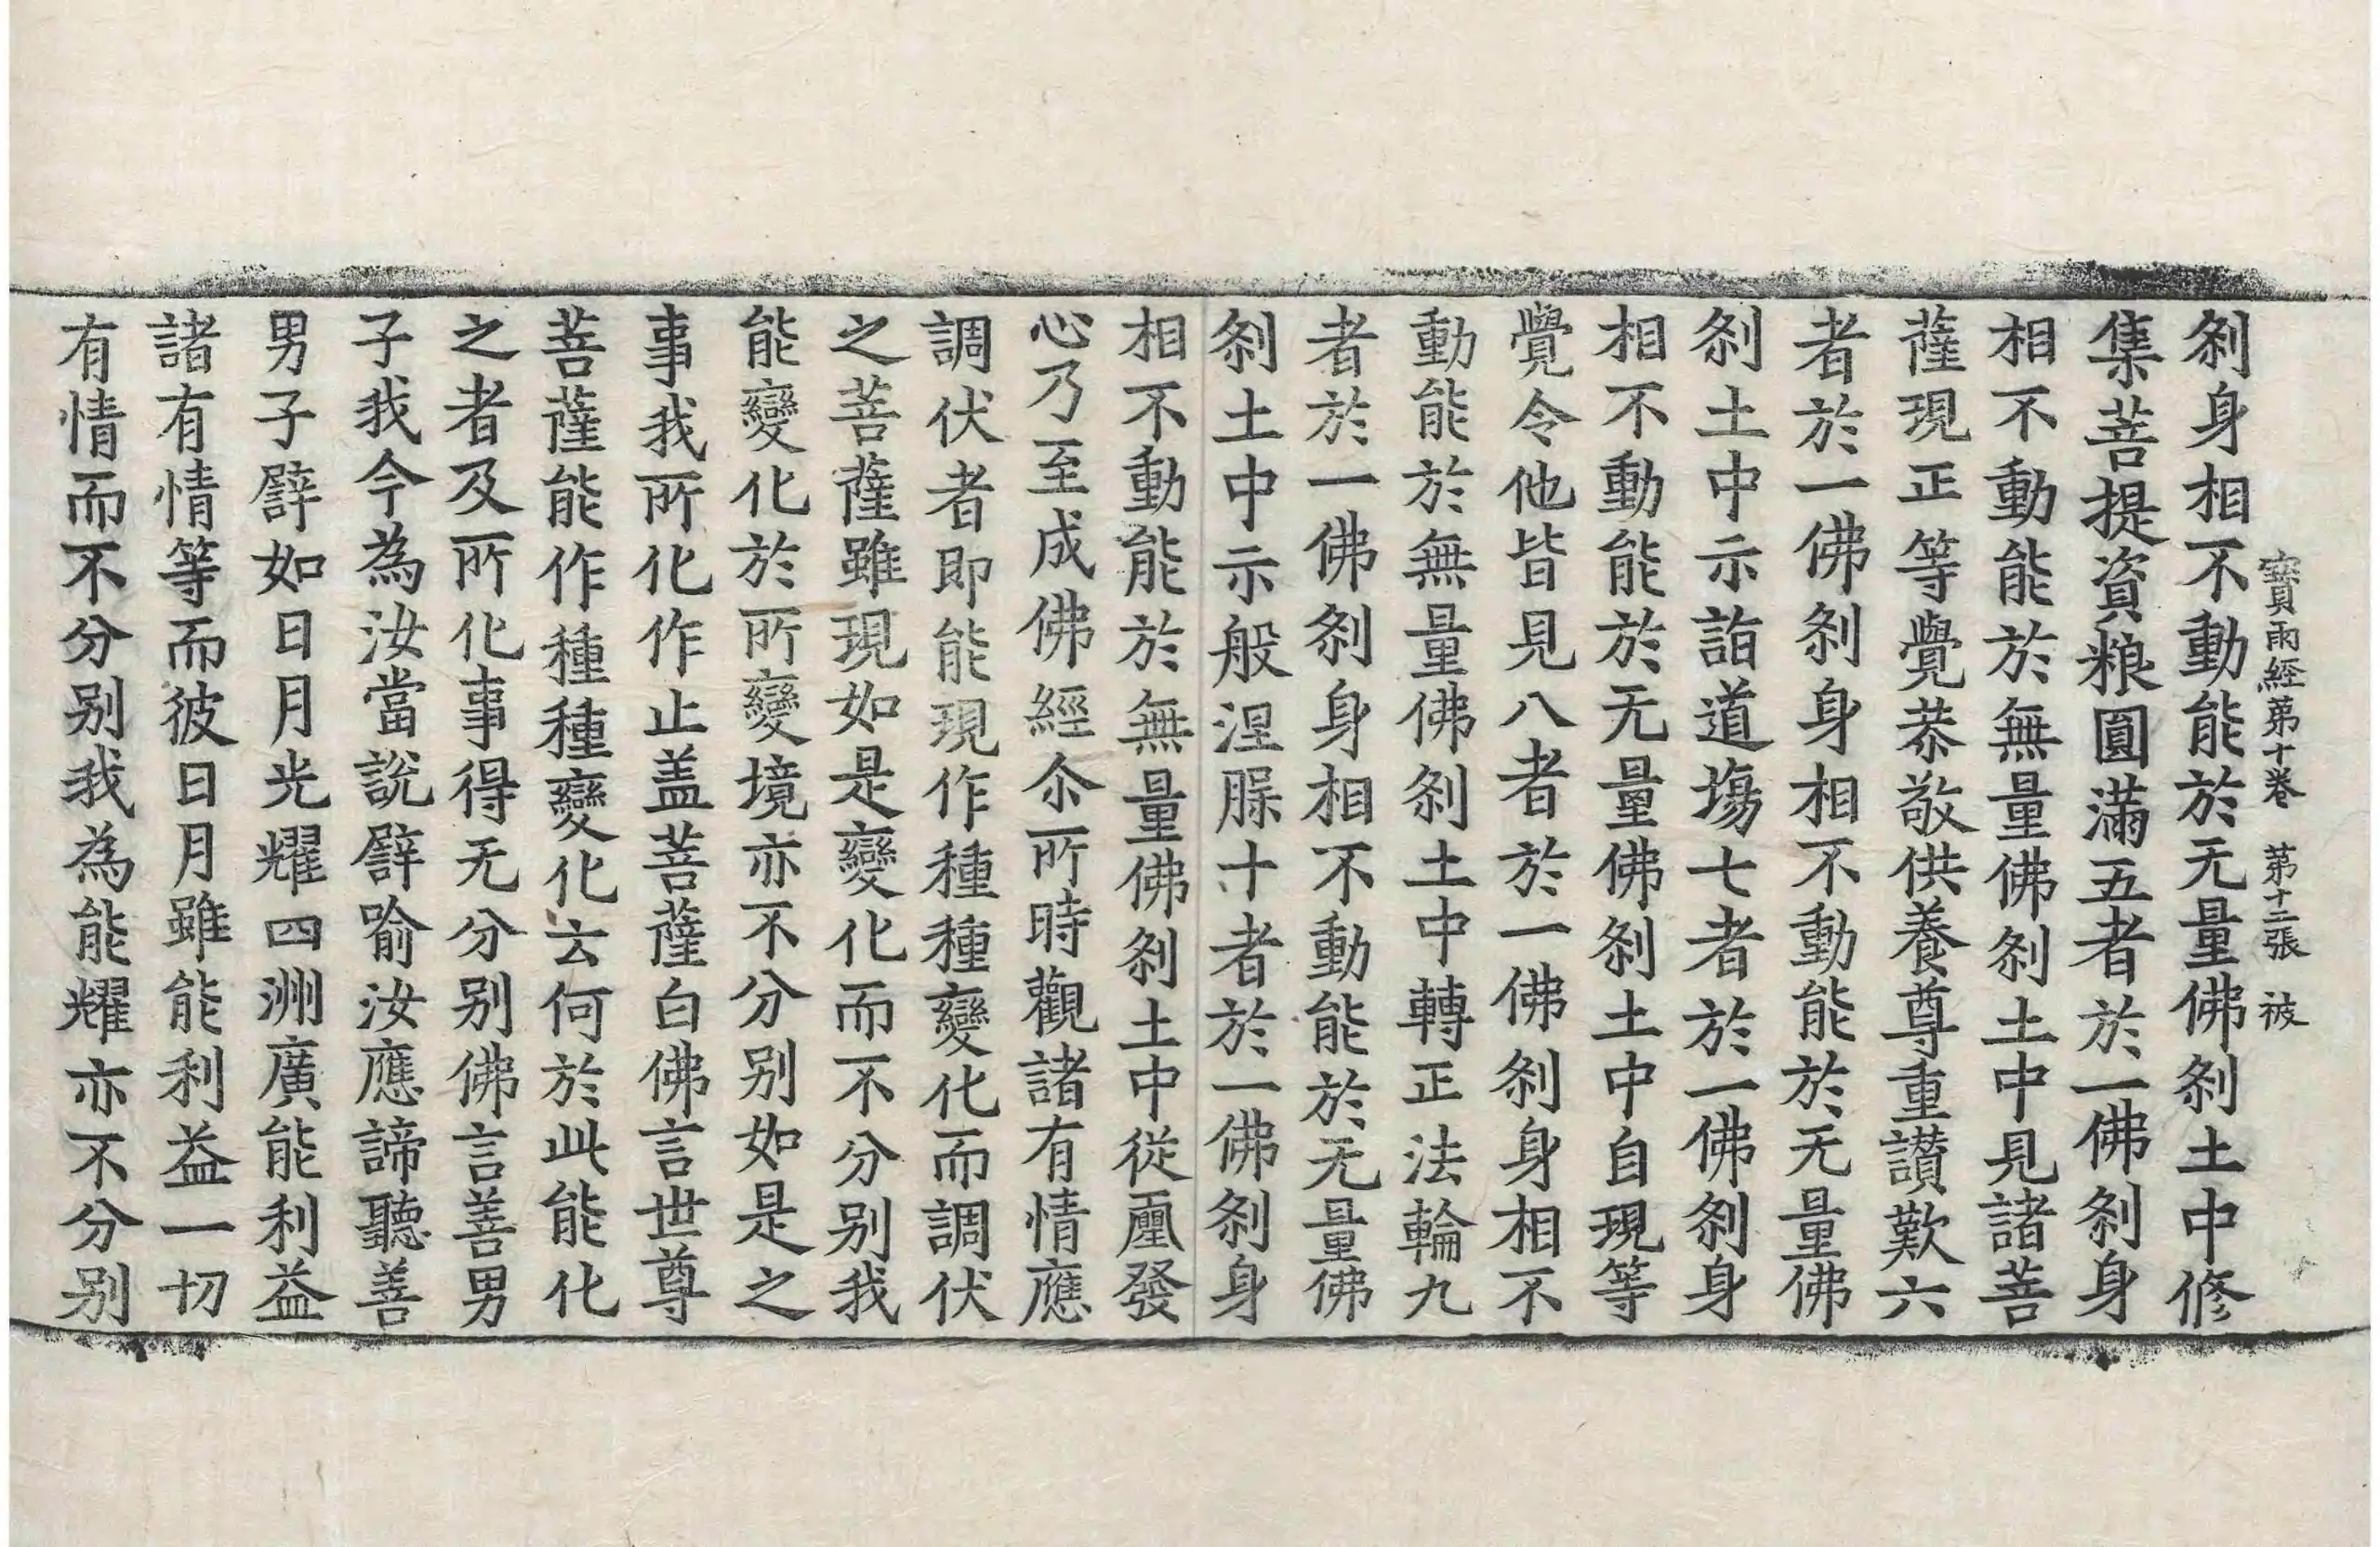 寶雨經第十卷　第十二張　被
刹身相不動能於无量佛刹土中修
集菩提資粮圓滿五者於一佛刹身
相不動能於無量佛刹土中見諸菩
薩現正等覺恭敬供養尊重讃歎六
者於一佛刹身相不動能於无量佛
刹土中示詣道場七者於一佛刹身
相不動能於无量佛刹土中自現等
覺令他皆見八者於一佛刹身相不
動能於無量佛刹土中轉正法輪九
者於一佛刹身相不動能於无量佛
刹土中示般涅槃十者於一佛刹身
相不動能於無量佛刹土中從㕓發
心乃至成佛經尒所時觀諸有情應
調伏者即能現作種種變化而調伏
之菩薩雖現如是變化而不分别我
能變化於所變境亦不分别如是之
事我所化作止盖菩薩白佛言世尊
菩薩能作種種變化云何於此能化
之者及所化事得无分别佛言善男
子我今為汝當說譬喻汝應諦聽善
男子譬如日月光耀四洲廣能利益
諸有情等而彼日月雖能利益一切
有情而不分别我為能耀亦不分别